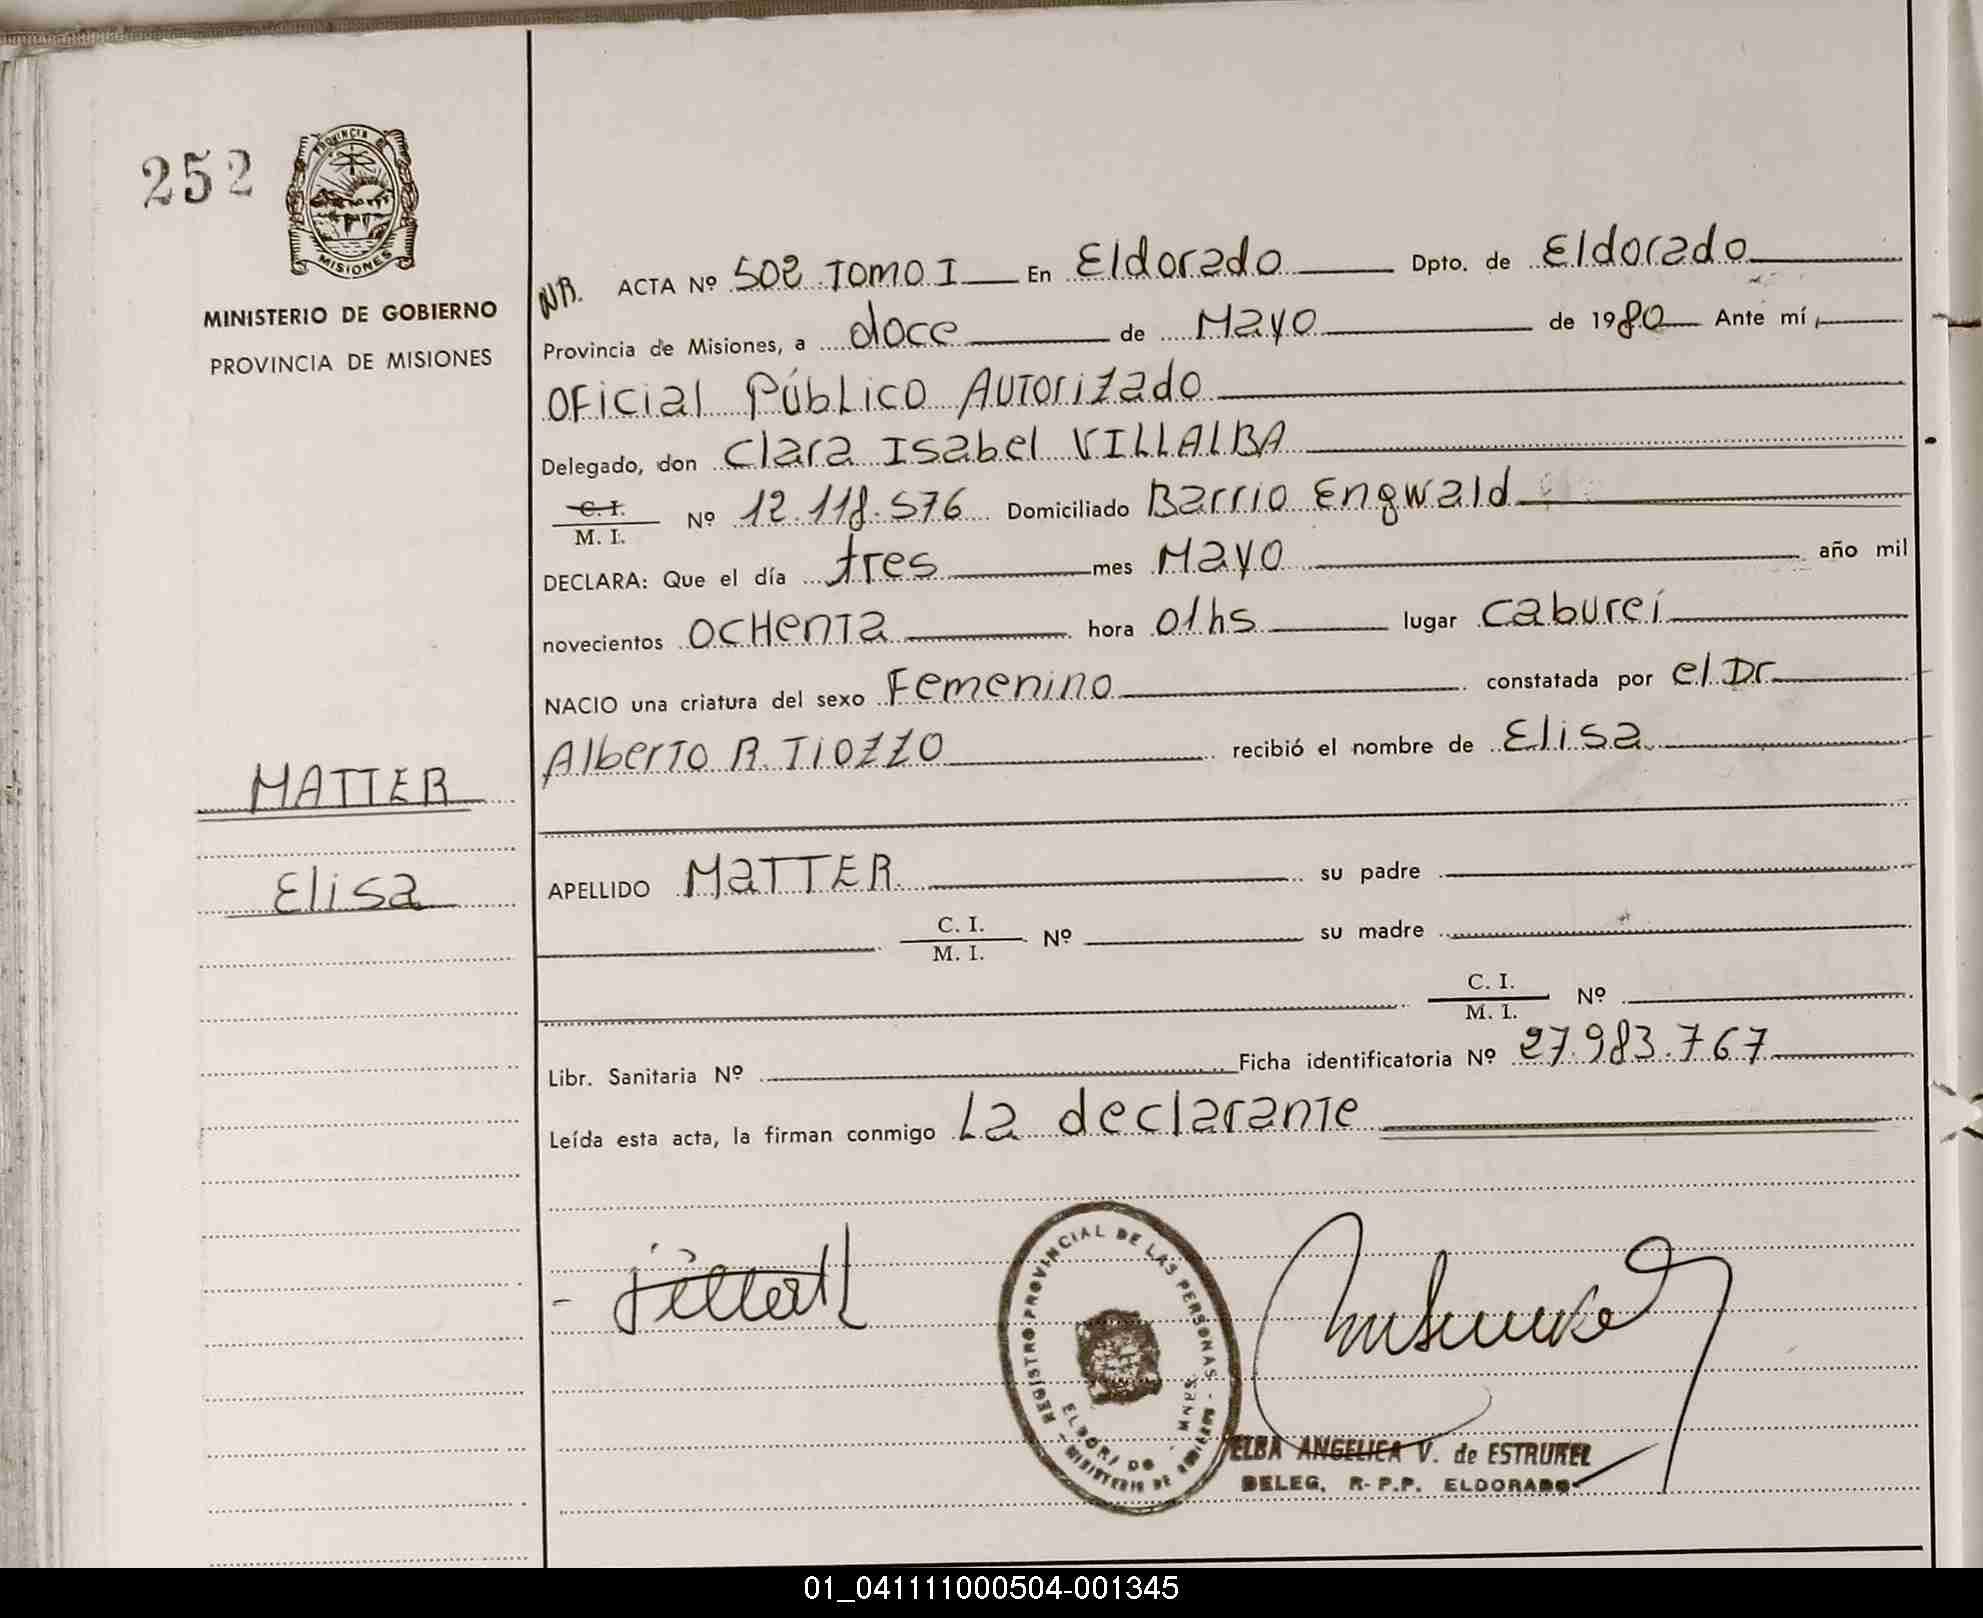 252
PROVINCIA DE
MISIONES
MINISTERIO DE GOBIERNO
PROVINCIA DE MISIONES
NB. ACTA Nº 502 TOMO I En Eldorado Dpto. de Eldorado
Provincia de Misiones, a doce de Mayo de 1980 Ante mí,
Oficial Público Autorizado
Delegado, don Clara Isabel VILLALBA
C. I.
M. I. Nº 12.118.576 Domiciliado Barrio Engwald
DECLARA: Que el día tres mes Mayo año mil
novecientos ochenta hora 01hs lugar Cabureí
NACIO una criatura del sexo Femenino constatada por el Dr
Alberto R. Tiozzo recibió el nombre de Elisa
MATTER
Elisa
APELLIDO MATTER su padre
C. I.
M. I. Nº su madre
C. I.
M. I. Nº
Libr. Sanitaria Nº Ficha identificatoria Nº 27.983.767
Leída esta acta, la firman conmigo La declarante
REGISTRO PROVINCIAL DE LAS PERSONAS - MNES.
MINISTERIO DE
ELDORADO
ELBA ANGELICA V. de ESTRUREL
DELEG. R-P.P. ELDORADO
01_041111000504-001345